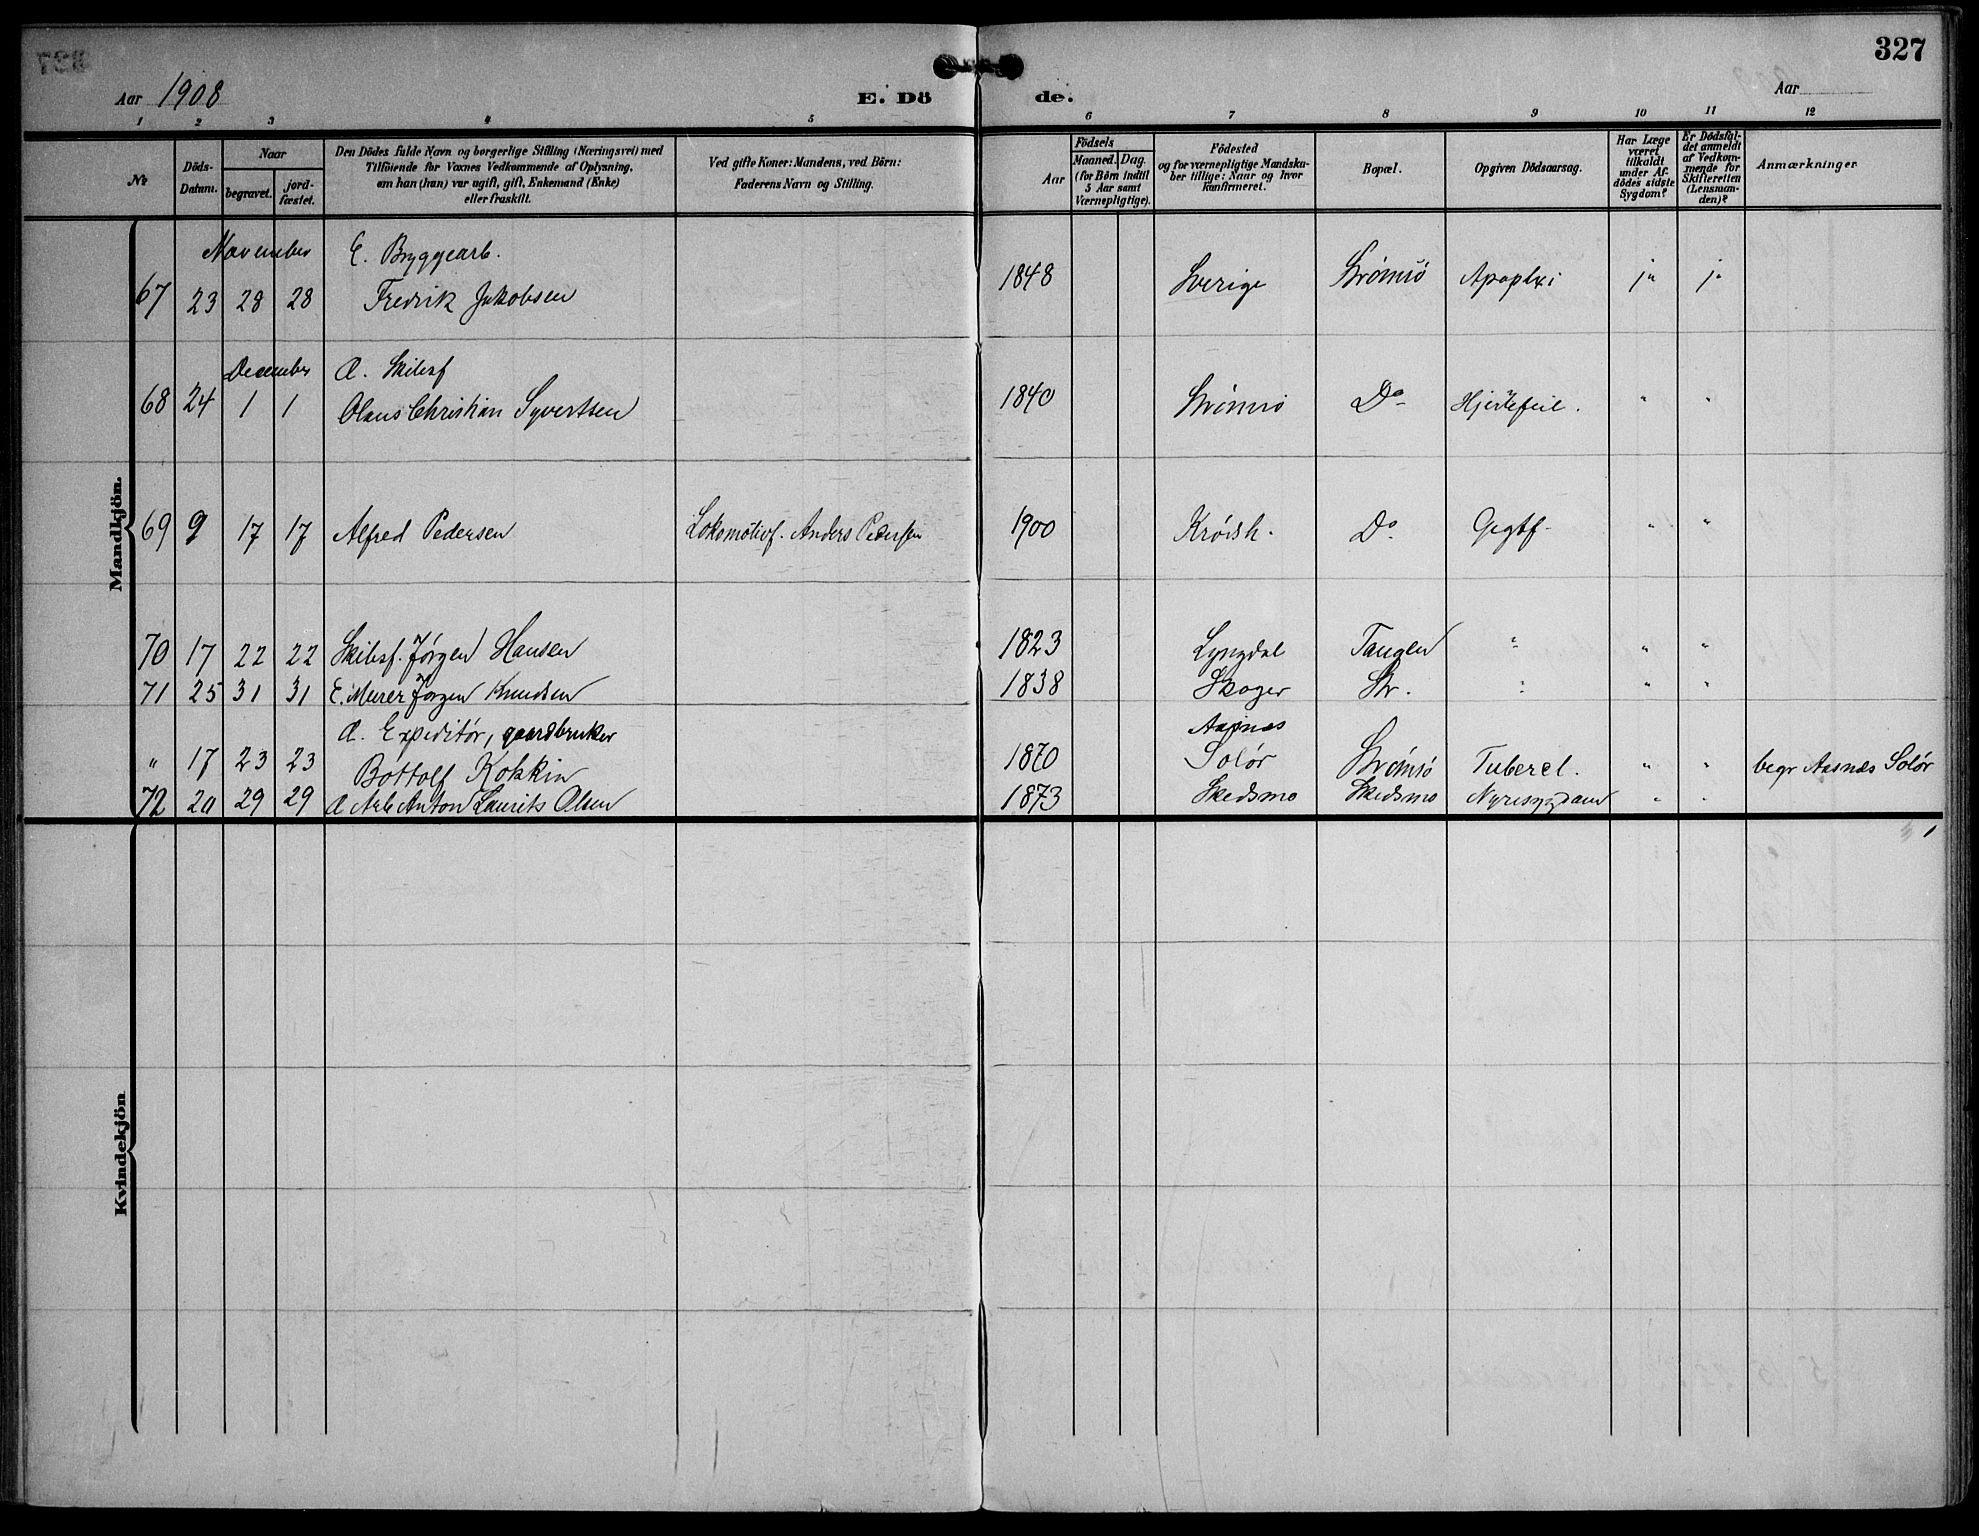 327
Aar 1908
E. Dö de.
Aar
1 2 3 4 5 6 7 8 9 10 11 12
No
Döds-Datum.
Naar
begravet.
jord-fæstet.
Den Dödes fulde Navn og borgerlige Stilling (Næringsvei) med
Tilföiende for Voxnes Vedkommende af Oplysning,
om han (hun) var ugift, gift, Enkemand (Enke)
eller fraskilt.
Ved gifte Koner: Mandens, ved Börn:
Faderens Navn og Stilling.
Födsels
Aar
Maaned. Dag.
(for Börn indtil
5 Aar samt
Værnepligtige).
Födested
og for værnepligtige Mandska-
ber tillige: Naar og hvor
konfirmeret.
Bopæl.
Opgiven Dödsaarsag.
Har Læge
været
tilkaldt
under Af-
dödes sidste
Sygdom?
Er Dödsfal-
det anmeldt
af Vedkom-
mende for
Skifteretten
(Lensman-
den)?
Anmærkninger
Mandkjön.
November E. Bryggearb.
67 23 28 28 Fredrik Jakobsen 1848 Sverige Strømsö Apoplexi ja ja
December Æ. Skibsf
68 24 1 1 Olaus Christian Syvertsen 1840 Strömsö Do Hjertefeil. " "
69 9 17 17 Alfred Pedersen Lokomotivf. Anders Pedersen 1900 Krødsh. Do Gigtf. " "
70 17 22 22 Skibsf. Jørgen Hansen 1823 Lyngdal Tangen " " "
71 25 31 31 E. Murer Jørgen Knudsen 1838 Skoger Str. " " "
Æ. Expeditør, gaardbruker Aasnes
" 17 23 23 Bottolf Kokkin 1870 Solør Strømsö Tubercl. " " begr Aasnes Solør
72 20 29 29 Æ Arb Anton Laurits Olsen 1873 Skedsmo Skedsmo Nyresygdom " "
Kvindekjön